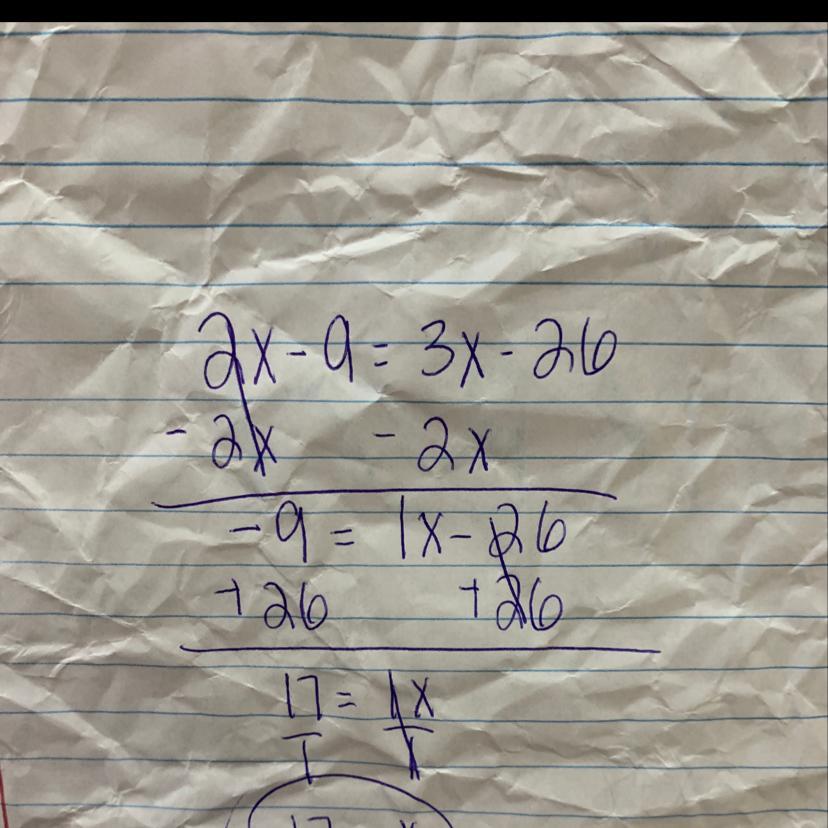 2x - 9 = 3x - 26
- 2x - 2x
-9 = 1x - 26
+ 26 + 26
17 = 1x
1 1